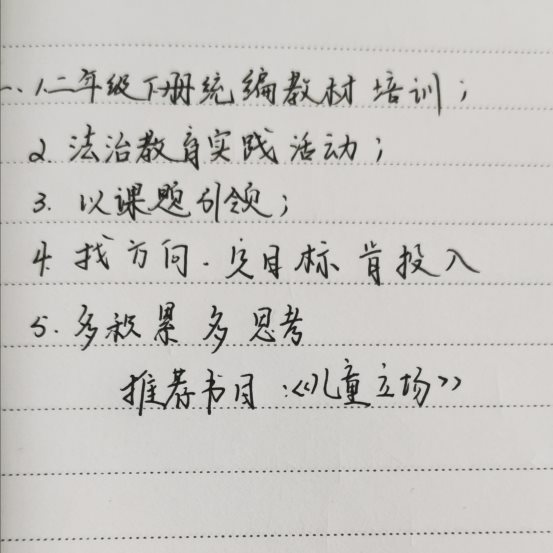 一、1.二年级下册统编教材培训；
2. 法治教育实践活动；
3. 以课题引领；
4. 找方向.定目标 肯投入
5. 多积累 多思考
推荐书目：《儿童立场》